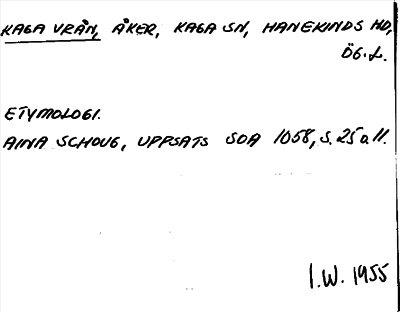 KAGA VRÅN, ÅKER, KAGA SN, HANEKINDS HD,
ÖG.L.
ETYMOLOGI.
AINA SCHOUG, UPPSATS SOA 1058, S. 25 o. 11.
I.W. 1955